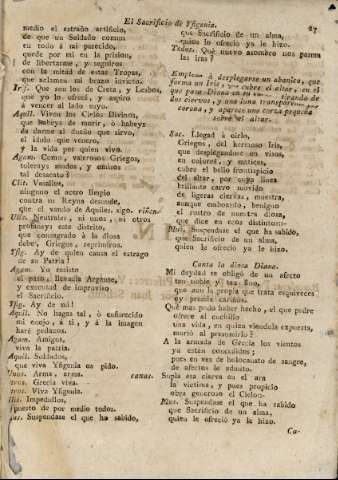 El Sacrificio de Yfigenia.
27
medio el estraño artificio,
de que un Soldado comun
en todo à mi parecido,
quede por mi en la prision,
de libertarme, y seguiros
con la mitad de estas Tropas,
que aclaman mi brazo invicto.
Trif. Que son los de Creta, y Lesbos,
que yo te ofreci, y aspiro
à vencer al lado tuyo.
Aquil. Vivan los Cielos Divinos,
que habeys de morir, ò habeys
de darme al dueño que sirvo,
el idolo que venero,
y la vida por quien vivo.
Agam. Como, valerosos Griegos,
tolerays mudos, y omisos
tal desacato?
Clit. Vasallos,
ninguno el acero limpio
contra mi Reyna desnude,
que el vando de Aquiles sigo. riñen
Ulis. Neutrales, ni unos, ni otros
profaneys este distrito,
que consagrado à la diosa
debe, Griegos, reprimiros.
Yfig. Ay de quien causa el estrago
de su Patria!
Agam. Yo resisto
el paso, Batalla Argante,
y executad de improviso
el Sacrificio.
Yfig. Ay de mi!
Aquil. No hagas tal, ò enfurecido
mi enojo, a ti, y á la imagen
haré pedazos.
Agam. Amigos,
viva la patria.
Aquil. Soldados,
que viva Yfigenia os pido.
Unos. Arma, arma.
Otros. Grecia viva.
Otros. Viva Yfigenia.
Ulis. Impedidlos,
puesto de por medio todos.
Mus. Suspendase el que ha sabido,
que Sacrificio de un alma,
quien lo ofreció ya le hizo.
Todos. Què nuevo asombro nos paran
las iras?
Empieza à desplegarse un abanico, que
forma un Iris, y cubre el altar, en el
que pasa Diana en su tirando de
dos ciervos, y una luna transparente por
corona, y aparece una corza pequeña
sobre el altar.
Sac. Llegad à oirlo,
Griegos, del hermoso Iris,
que desplegandose en visos,
en colores, y matices,
cubre el bello frontispicio
del altar, por cuya linea
brillante carro movido
de ligeras ciervas, nuestra,
aunque embozado, benigno
el rostro de nuestra diosa,
que dice en ecos distintos:
Mus. Suspendase el que ha sabido,
que Sacrificio de un alma,
quien le ofreció ya le hizo.
Canta la diosa Diana.
Mi deydad se obligò de un afecto
tan noble y tan fino,
que aun la propia que trata esquiveces
oy premia cariños.
Que mas pudo haber hecho, el que padre
ofrece el cuchillo
una vida, en quien viendola expuesta,
muriò la presumirlo?
A la armada de Grecia los vientos
ya están concedidos;
pues en vez de holocausto de sangre,
de afectos le admito.
Supla esa cierva en el ara
la victima, y pues propicio
obra generoso el Cielo
Mus. Suspendase el que ha sabido
que Sacrificio de un alma,
quien le ofreció ya le hizo.
Ca-